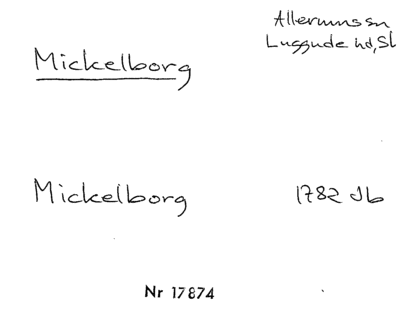 Mickelborg
Allerums sn
Luggude hd, Sk
Mickelborg
1782 Jb
Nr 17874